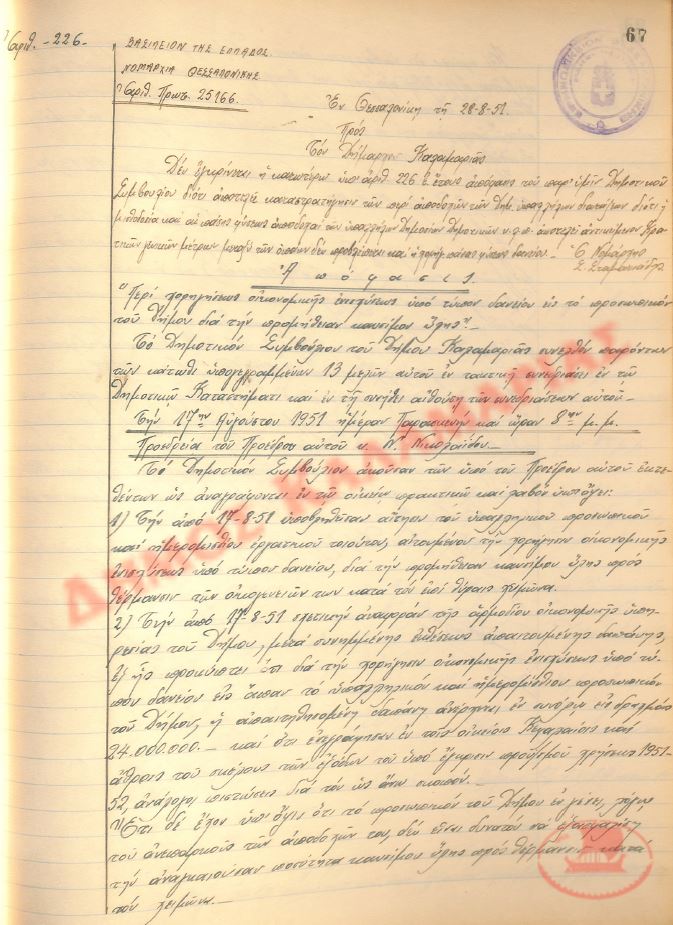 67
Ἀριθ. -226-
ΒΑΣΙΛΕΙΟΝ ΤΗΣ ΕΛΛΑΔΟΣ
ΝΟΜΑΡΧΙΑ ΘΕΣΣΑΛΟΝΙΚΗΣ
Ἀριθ. Πρωτ. 25166.
Ἐν Θεσσαλονίκῃ τῇ 28-8-51.
Πρός
Τόν Δήμαρχον Καλαμαριᾶς
Δέν ἐγκρίνεται ἡ κατωτέρω ὑπ' ἀριθ. 226 ἐ. ἔτους ἀπόφασις τοῦ παρ' ὑμῖν Δημοτικοῦ
Συμβουλίου διότι ἀποτελεῖ καταστρατήγησιν τῶν περί ἀποδοχῶν τῶν δημ. ὑπαλλήλων διατάξεων διότι ἡ
μισθοδοσία καί αἱ πάσης φύσεως ἀποδοχαί τῶν ὑπαλλήλων Δημοσίων Δημοτικῶν κ.λ.π. ἀποτελεῖ ἀντικείμενον
γενικῶν μέτρων μεταξύ τῶν ὁποίων δέν προβλέπεται καί ἡ φύσεως δανείου.- Ὁ Νομάρχης
Ἀπόφασις.
"Περί χορηγήσεως οἰκονομικῆς ἐνισχύσεως ὑπό τύπον δανείου εἰς τό προσωπικόν
τοῦ Δήμου διά τήν προμήθειαν καυσίμου ὕλης".-
Τό Δημοτικόν Συμβούλιον τοῦ Δήμου Καλαμαριᾶς συνελθόν παρόντων
τῶν κάτωθι ὑπογεγραμμένων 13 μελῶν αὐτοῦ ἐν τακτικῇ συνεδριάσει ἐν τῷ
Δημοτικῷ Καταστήματι καί ἐν τῇ συνήθει αἰθούσῃ τῶν συνεδριάσεων αὐτοῦ.-
Τήν 17ην Αὐγούστου 1951 ἡμέραν Παρασκευήν καί ὥραν 8ην μ.μ.
Προεδρεία τοῦ Προέδρου αὐτοῦ κ. Νικολαΐδου.-
Τό Δημοτικόν Συμβούλιον ἀκοῦσαν τῶν ὑπό τοῦ Προέδρου αὐτοῦ ἐκτε-
θέντων ὡς ἀναγράφονται ἐν τοῖς οἰκείοις πρακτικοῖς καί λαβόν ὑπ' ὄψει:
1) Τήν ἀπό 17-8-51 ὑποβληθεῖσαν αἴτησιν τοῦ ὑπαλληλικοῦ προσωπικοῦ
καί ἡμερομισθίου ἐργατικοῦ τοιούτου, αἰτουμένου τήν χορήγησιν οἰκονομικῆς
ἐνισχύσεως ὑπό τύπον δανείου, διά τήν προμήθειαν καυσίμου ὕλης πρός
θέρμανσιν τῶν οἰκογενειῶν των κατά τόν ἐπί θύραις χειμῶνα.
2) Τήν ἀπό 17-8-51 σχετικήν ἀναφοράν τῆς ἁρμοδίου οἰκονομικῆς ὑπη-
ρεσίας τοῦ Δήμου, μετά συνημμένης ἐκθέσεως ἀπαιτουμένης δαπάνης,
ἐξ ἧς προκύπτει ὅτι διά τήν χορήγησιν οἰκονομικῆς ἐνισχύσεως ὑπό τύ-
πον δανείου εἰς ἅπαν τό ὑπαλληλικόν καί ἡμερομίσθιον προσωπικόν
τοῦ Δήμου, ἡ ἀπαιτηθησομένη δαπάνη ἀνέρχεται ἐν συνόλῳ εἰς δραχμάς
24.000.000.- καί ὅτι ἐνεγράφησαν ἐν τοῖς οἰκείοις Κεφαλαίοις καί
ἄρθροις τοῦ σκέλους τῶν ἐξόδων τοῦ ὑπό ἔγκρισιν προϋπ/σμοῦ χρήσεως 1951-
52, ἀνάλογοι πιστώσεις διά τόν ὡς ἄνω σκοπόν.-
Ἔτι δέ ἔχον ὑπ' ὄψει ὅτι τό προσωπικόν τοῦ Δήμου ἐν γένει, λόγῳ
τοῦ ἀνεπαρκοῦς τῶν ἀποδοχῶν του, δέν εἶναι δυνατόν νά ἐξασφαλίσῃ
τήν ἀναγκαιοῦσαν ποσότητα καυσίμου ὕλης πρός θέρμανσιν κατά
τόν χειμῶνα.-
ΔΗΜΟΣ ΚΑΛΑΜΑΡΙΑΣ